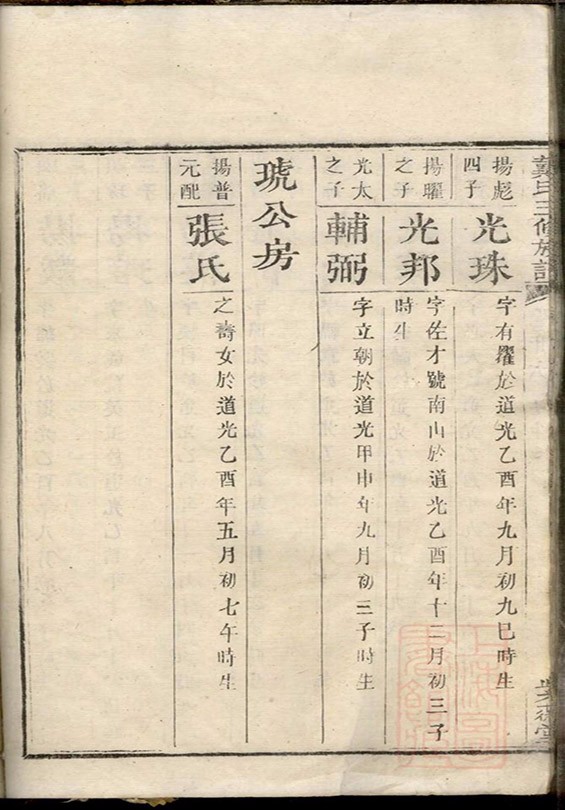 龔氏三修族譜
揚彪
四子
光珠
字有耀於道光乙酉年九月初九巳時生
揚曜
之子
光邦
字佐才號南山於道光乙酉年十一月初三子
時生
光太
之子
輔弼
字立朝於道光甲申年九月初三子時生
琥公房
揚普
元配
張氏
之喬女於道光乙酉年五月初七午時生